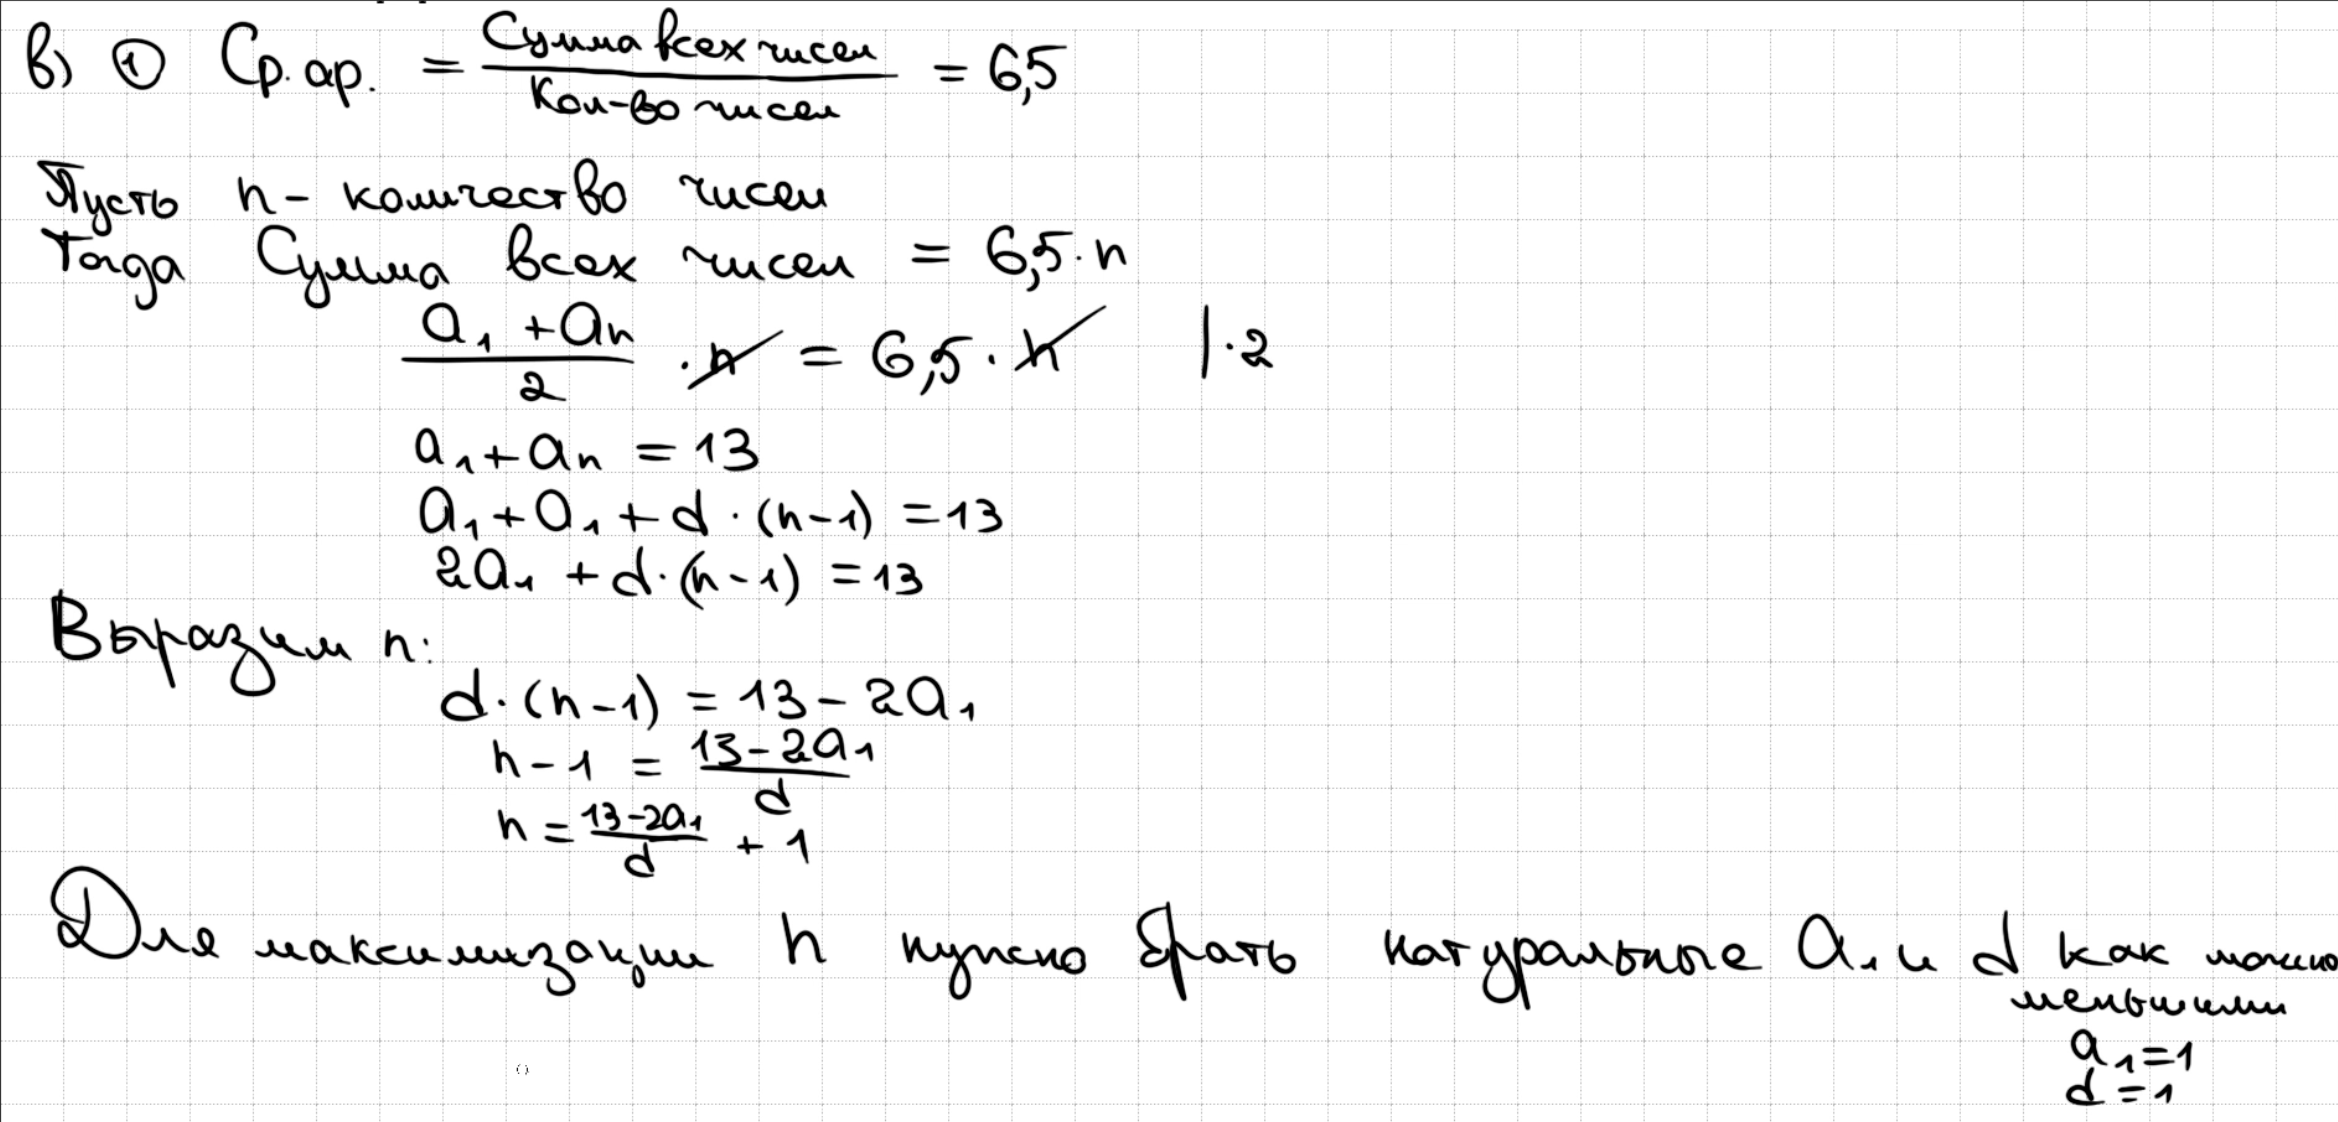 в) ① Ср. ар. = Сумма всех чисел / Кол-во чисел = 6,5
Пусть n - количество чисел
Тогда Сумма всех чисел = 6,5 · n
(a₁ + aₙ)/2 · n = 6,5 · n | · 2
a₁ + aₙ = 13
a₁ + a₁ + d · (n-1) = 13
2a₁ + d · (n-1) = 13
Выразим n:
d · (n-1) = 13 - 2a₁
n - 1 = (13 - 2a₁)/d
n = (13 - 2a₁)/d + 1
Для максимизации n нужно брать натуральные a₁ и d как можно
меньшими
a₁ = 1
d = 1